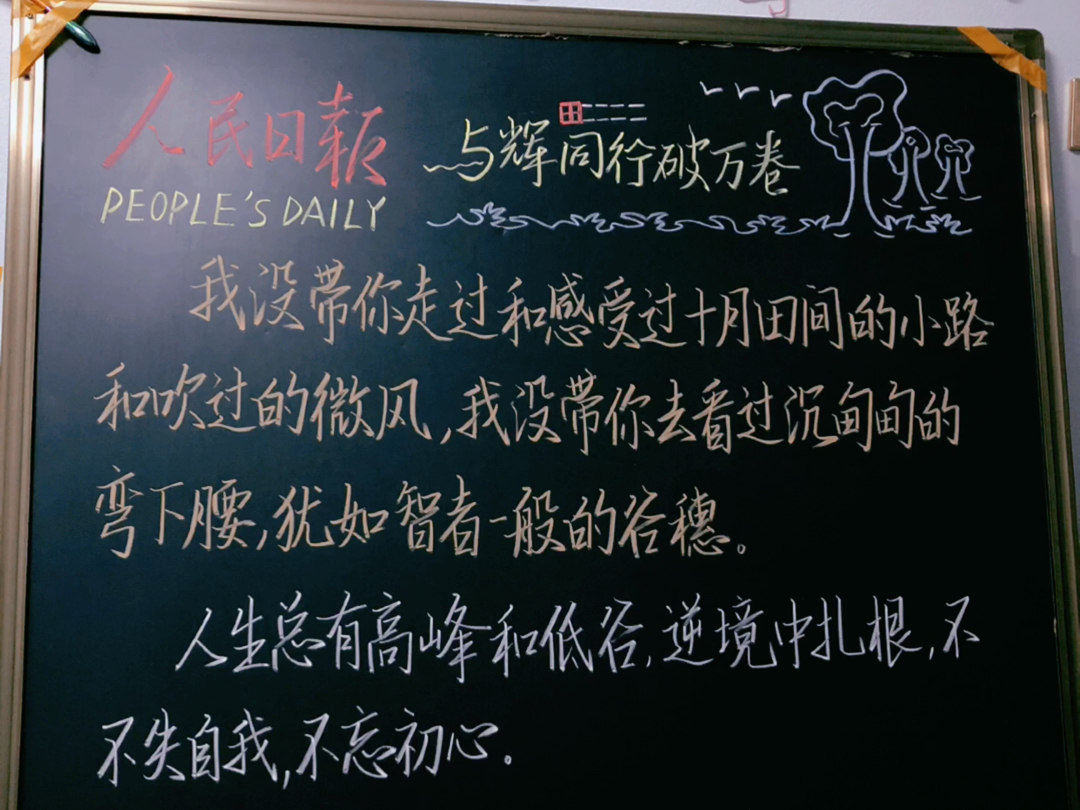 人民日报
PEOPLE'S DAILY
与辉同行破万卷
我没带你走过和感受过十月田间的小路
和吹过的微风,我没带你去看过沉甸甸的
弯下腰,犹如智者一般的谷穗。
人生总有高峰和低谷,逆境中扎根,不
不失自我,不忘初心。